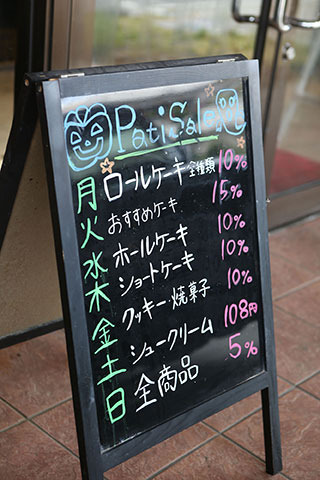 Pati Sale
月 ロールケーキ 全種類 10%
火 おすすめケーキ 15%
水 ホールケーキ 10%
木 ショートケーキ 10%
金 クッキー・焼菓子 10%
土 シュークリーム 108円
日 全商品 5%